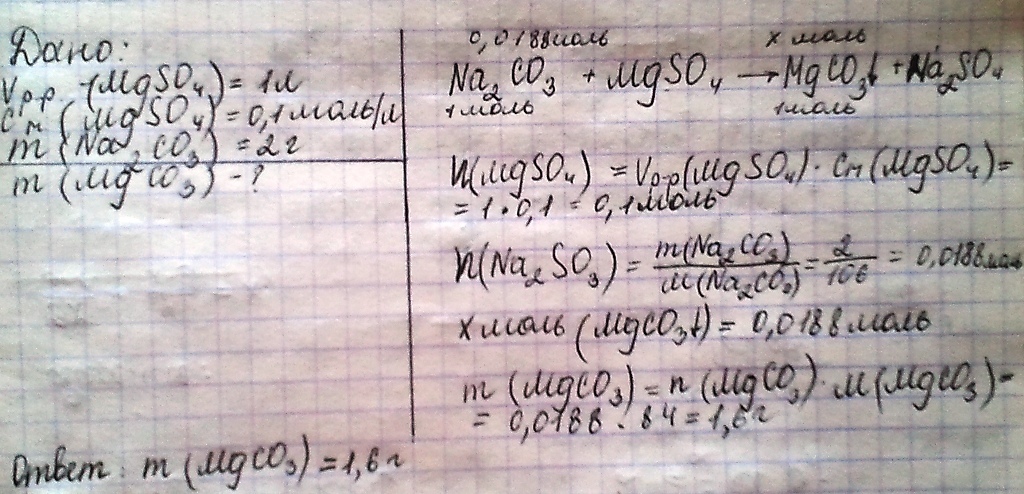 Дано:
Vр-р (MgSO₄) = 1л
Cм (MgSO₄) = 0,1 моль/л
m (Na₂CO₃) = 2 г
m (MgCO₃) - ?
0,0188моль x моль
Na₂CO₃ + MgSO₄ → MgCO₃↓ + Na₂SO₄
1моль 1моль
n(MgSO₄) = Vр-р(MgSO₄) · Cм(MgSO₄) =
= 1 · 0,1 = 0,1моль
n(Na₂SO₃) = m(Na₂CO₃)/M(Na₂CO₃) = 2/106 = 0,0188моль
x моль (MgCO₃↓) = 0,0188 моль
m (MgCO₃) = n (MgCO₃) · M(MgCO₃) =
= 0,0188 · 84 = 1,6г
Ответ: m (MgCO₃) = 1,6 г